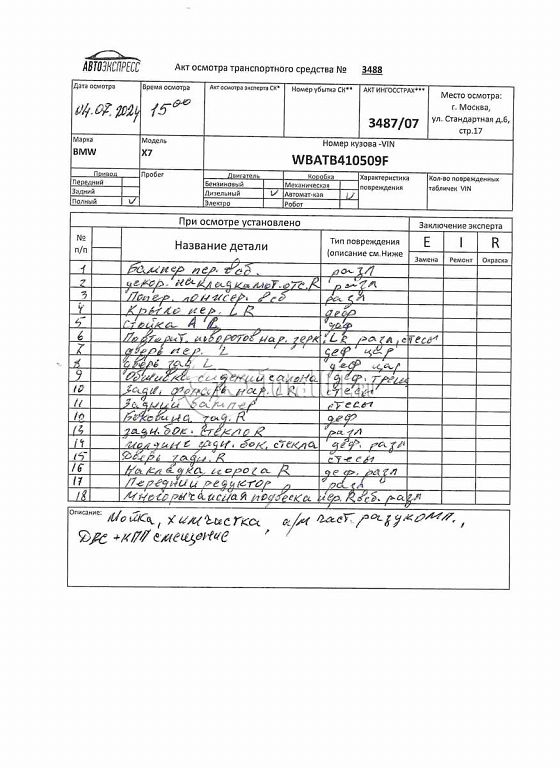 АВТОЭКСПРЕСС
Акт осмотра транспортного средства № 3488
Дата осмотра Время осмотра Акт осмотра эксперта СК* Номер убытка СК** АКТ ИНГОССТРАХ*** Место осмотра:
04.07.2024 15 00 3487/07 г. Москва,
ул. Стандартная д.6,
стр.17
Марка Модель Номер кузова -VIN
BMW X7 WBATB410509F
Привод Пробег Двигатель Коробка Характеристика повреждения Кол-во поврежденных табличек VIN
Передний Бензиновый Механическая
Задний Дизельный V Автомат-кая V
Полный V Электро Робот
При осмотре установлено Заключение эксперта
№ п/п Название детали Тип повреждения (описание см.Ниже E I R
Замена Ремонт Окраска
1 Бампер пер. в сб. разл
2 декор. накладка мот. отс. R разл
3 Попер. лонжер. в сб разл
4 Крыло пер. L R деф
5 Стойка A L деф
6 Повторит. поворотов нар. зерк. L R разл, стесы
7 дверь пер. L деф цар
8 дверь зад. L деф цар
9 Обшивка сидений салона деф. трещ
10 Задн. фонарь нар. L R стесы
11 Задний бампер стесы
12 Боковина зад. R деф
13 задн. бок. стекло R разл
14 молдинг задн. бок. стекла деф. разл
15 Дверь задн. R стесы
16 Накладка порога R деф. разл
17 Передний редуктор разл
18 Многорычажная подвеска пер. R в сб. разл
Описание: Мойка, химчистка, а/м част. разукомп.,
ДВС + КПП смещение